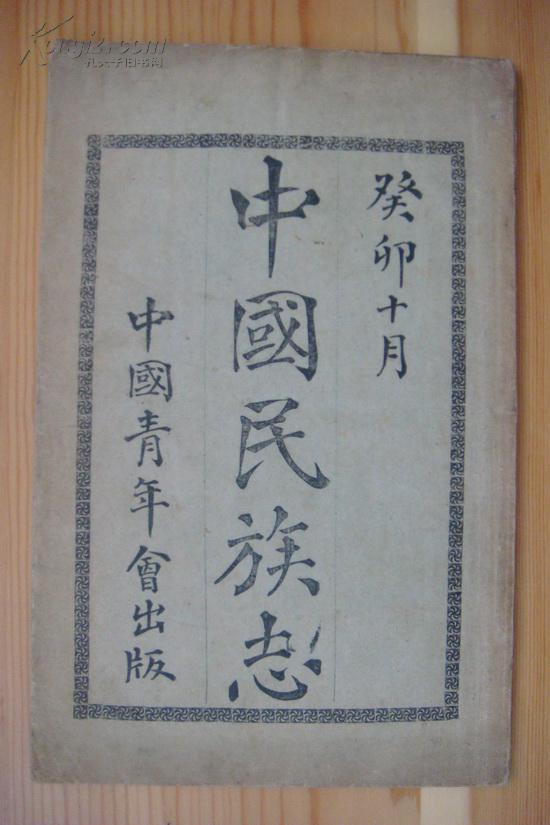 癸卯十月
中國民族志
中國青年會出版
Kongfz.com
孔夫子旧书网